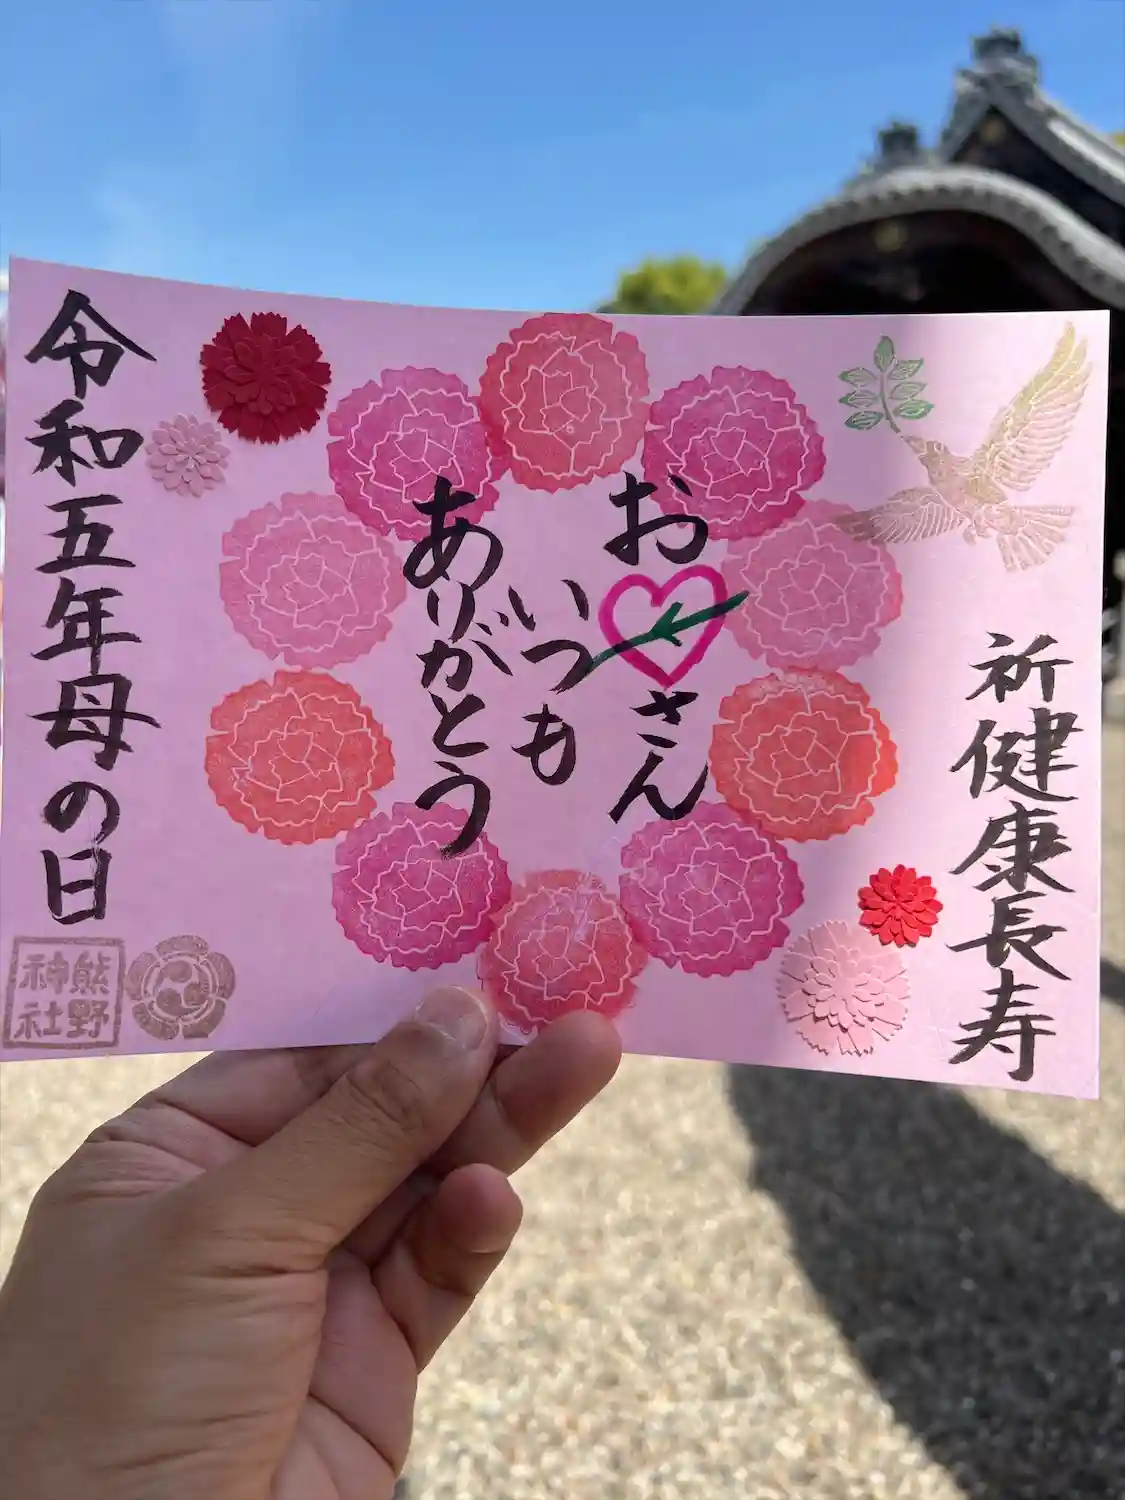 祈健康長寿
お
さん
いつも
ありがとう
令和五年母の日
熊野
神社